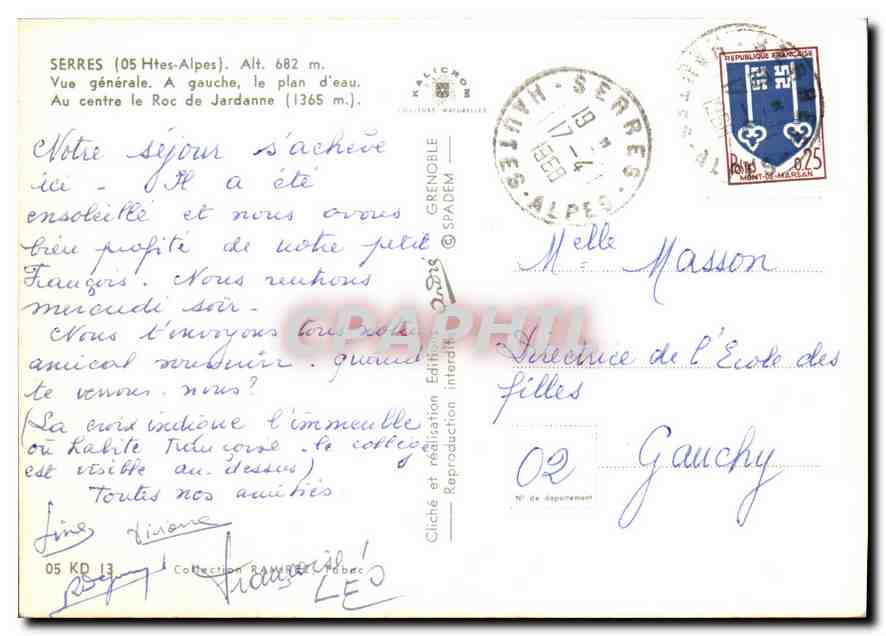 SERRES (05 Htes-Alpes). Alt. 682 m.
Vue générale. A gauche, le plan d'eau.
Au centre le Roc de Jardanne (1365 m.).
KALICROM
COULEURS NATURELLES
Notre séjour s'achève
ici - Il a été
ensoleillé et nous avons
bien profité de notre petit
François. Nous rentrons
mercredi soir -
Nous t'envoyons tous notre
amical souvenir. quand
te verrons-nous?
(La croix indique l'immeuble
où habite Françoise - le collège
est visible au-dessus)
Toutes nos amitiés
Françoise
LEO
05 KD 13
Collection RAMIREZ, Tabac
Cliché et réalisation Editions André GRENOBLE
Reproduction interdite © SPADEM
CPAPHIL
SERRES
HAUTES-ALPES
19 H
17-4
1968
REPUBLIQUE FRANÇAISE
Postes 0,25
MONT-DE-MARSAN
Melle Masson
Directrice de l'Ecole des
filles
02 Gauchy
N° de département